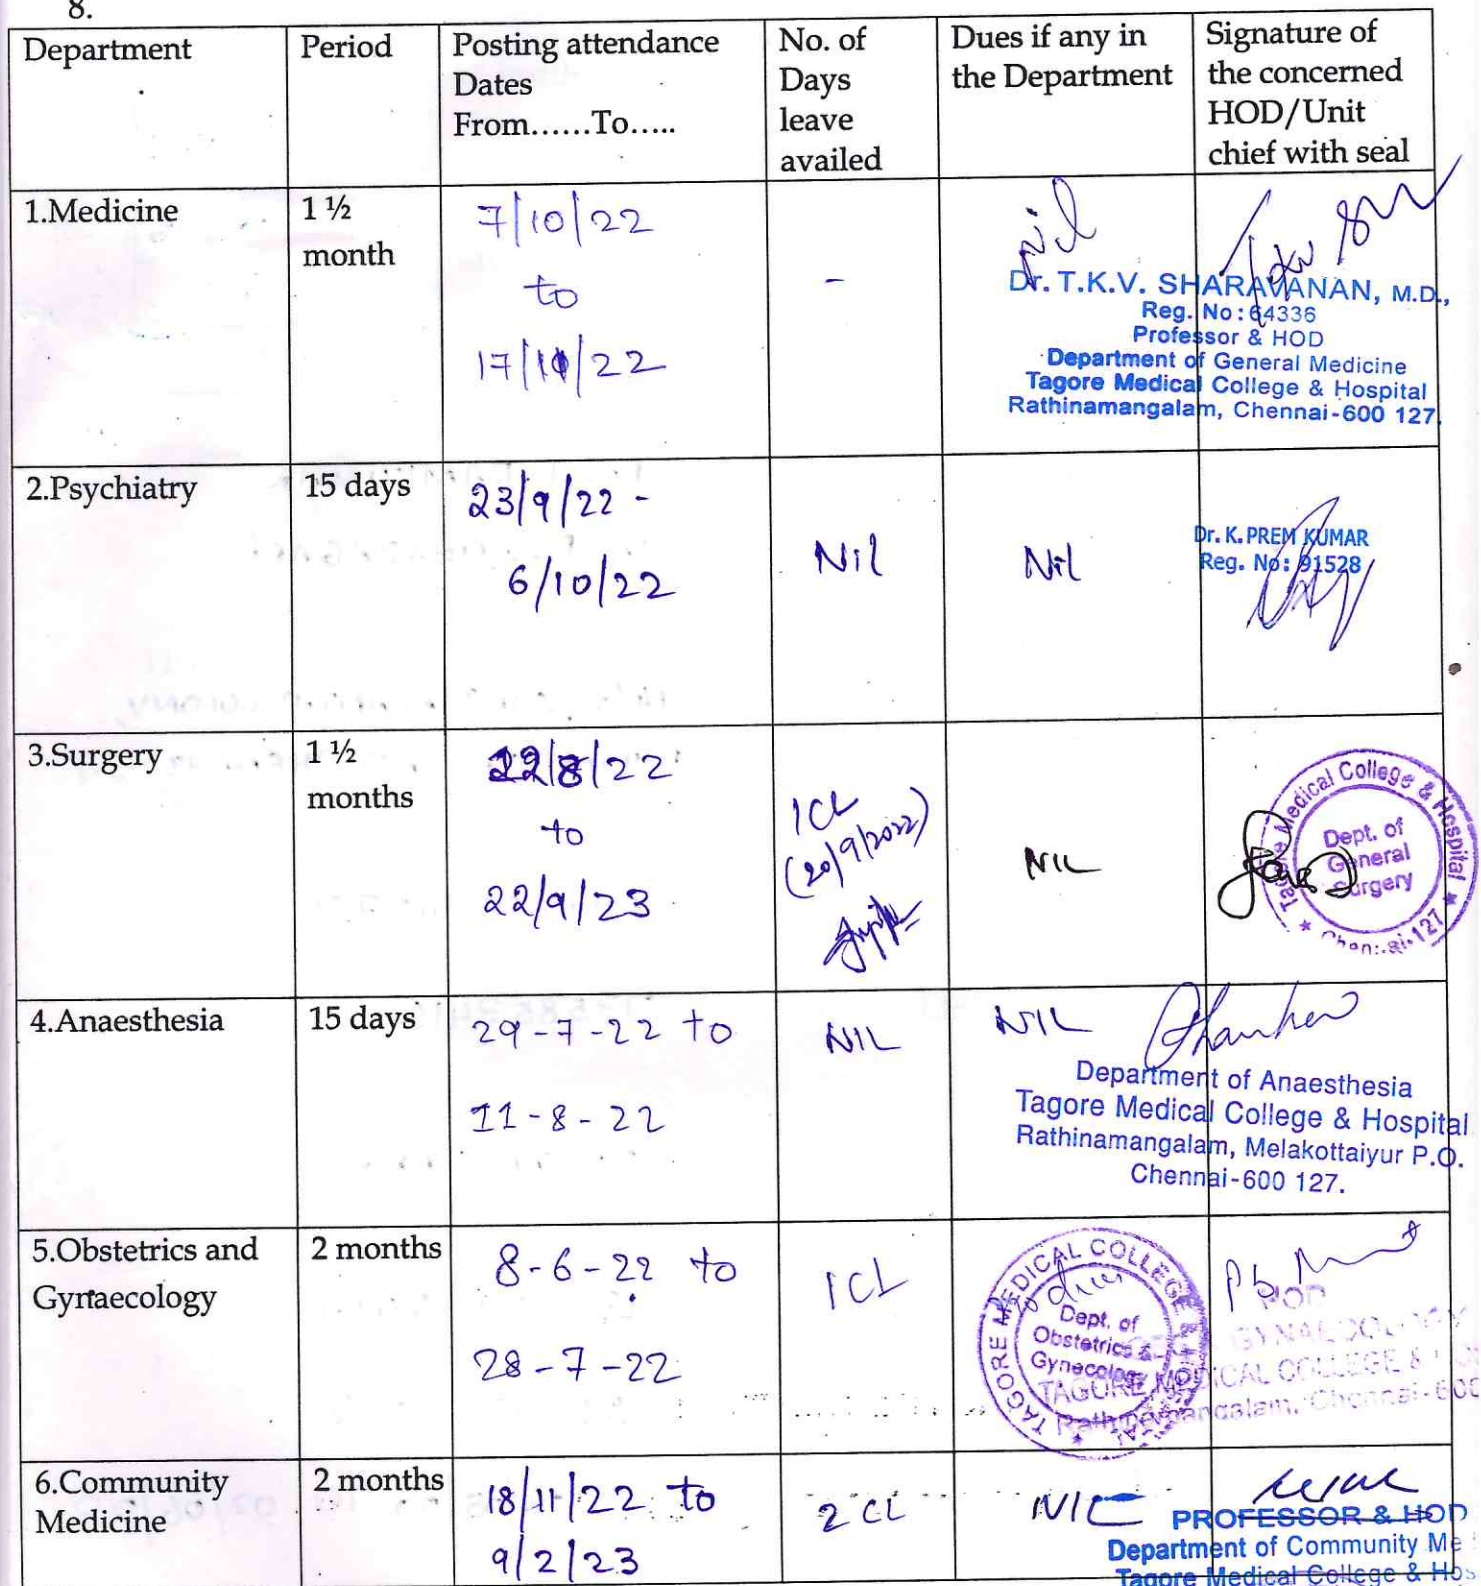 8.
Department
Period
Posting attendance
Dates
From......To.....
No. of
Days
leave
availed
Dues if any in
the Department
Signature of
the concerned
HOD/Unit
chief with seal
1.Medicine
1 ½
month
7/10/22
to
17/11/22
-
Nil
Dr. T.K.V. SHARAVANAN, M.D.,
Reg. No : 64336
Professor & HOD
Department of General Medicine
Tagore Medical College & Hospital
Rathinamangalam, Chennai-600 127
2.Psychiatry
15 days
23/9/22 -
6/10/22
Nil
Nil
Dr. K. PREM KUMAR
Reg. No: 91528
3.Surgery
1 ½
months
/8/22
to
22/9/23
1CL
(20/9/2022)
NIL
Tagore Medical College & Hospital
Dept. of
General
Surgery
Chennai-127
4.Anaesthesia
15 days
29-7-22 to
11-8-22
NIL
NIL
Department of Anaesthesia
Tagore Medical College & Hospital
Rathinamangalam, Melakottaiyur P.O.
Chennai-600 127.
5.Obstetrics and
Gynaecology
2 months
8-6-22 to
28-7-22
1CL
No dues
TAGORE MEDICAL COLLEGE &
Dept. of
Obstetrics &
Gynecology
HOD
GYNAECOLOGY
TAGORE MEDICAL COLLEGE &
Rathinamangalam, Chennai-600
6.Community
Medicine
2 months
18/11/22 to
9/2/23
2 CL
NIL
PROFESSOR & HOD
Department of Community Me
Tagore Medical College & Hos